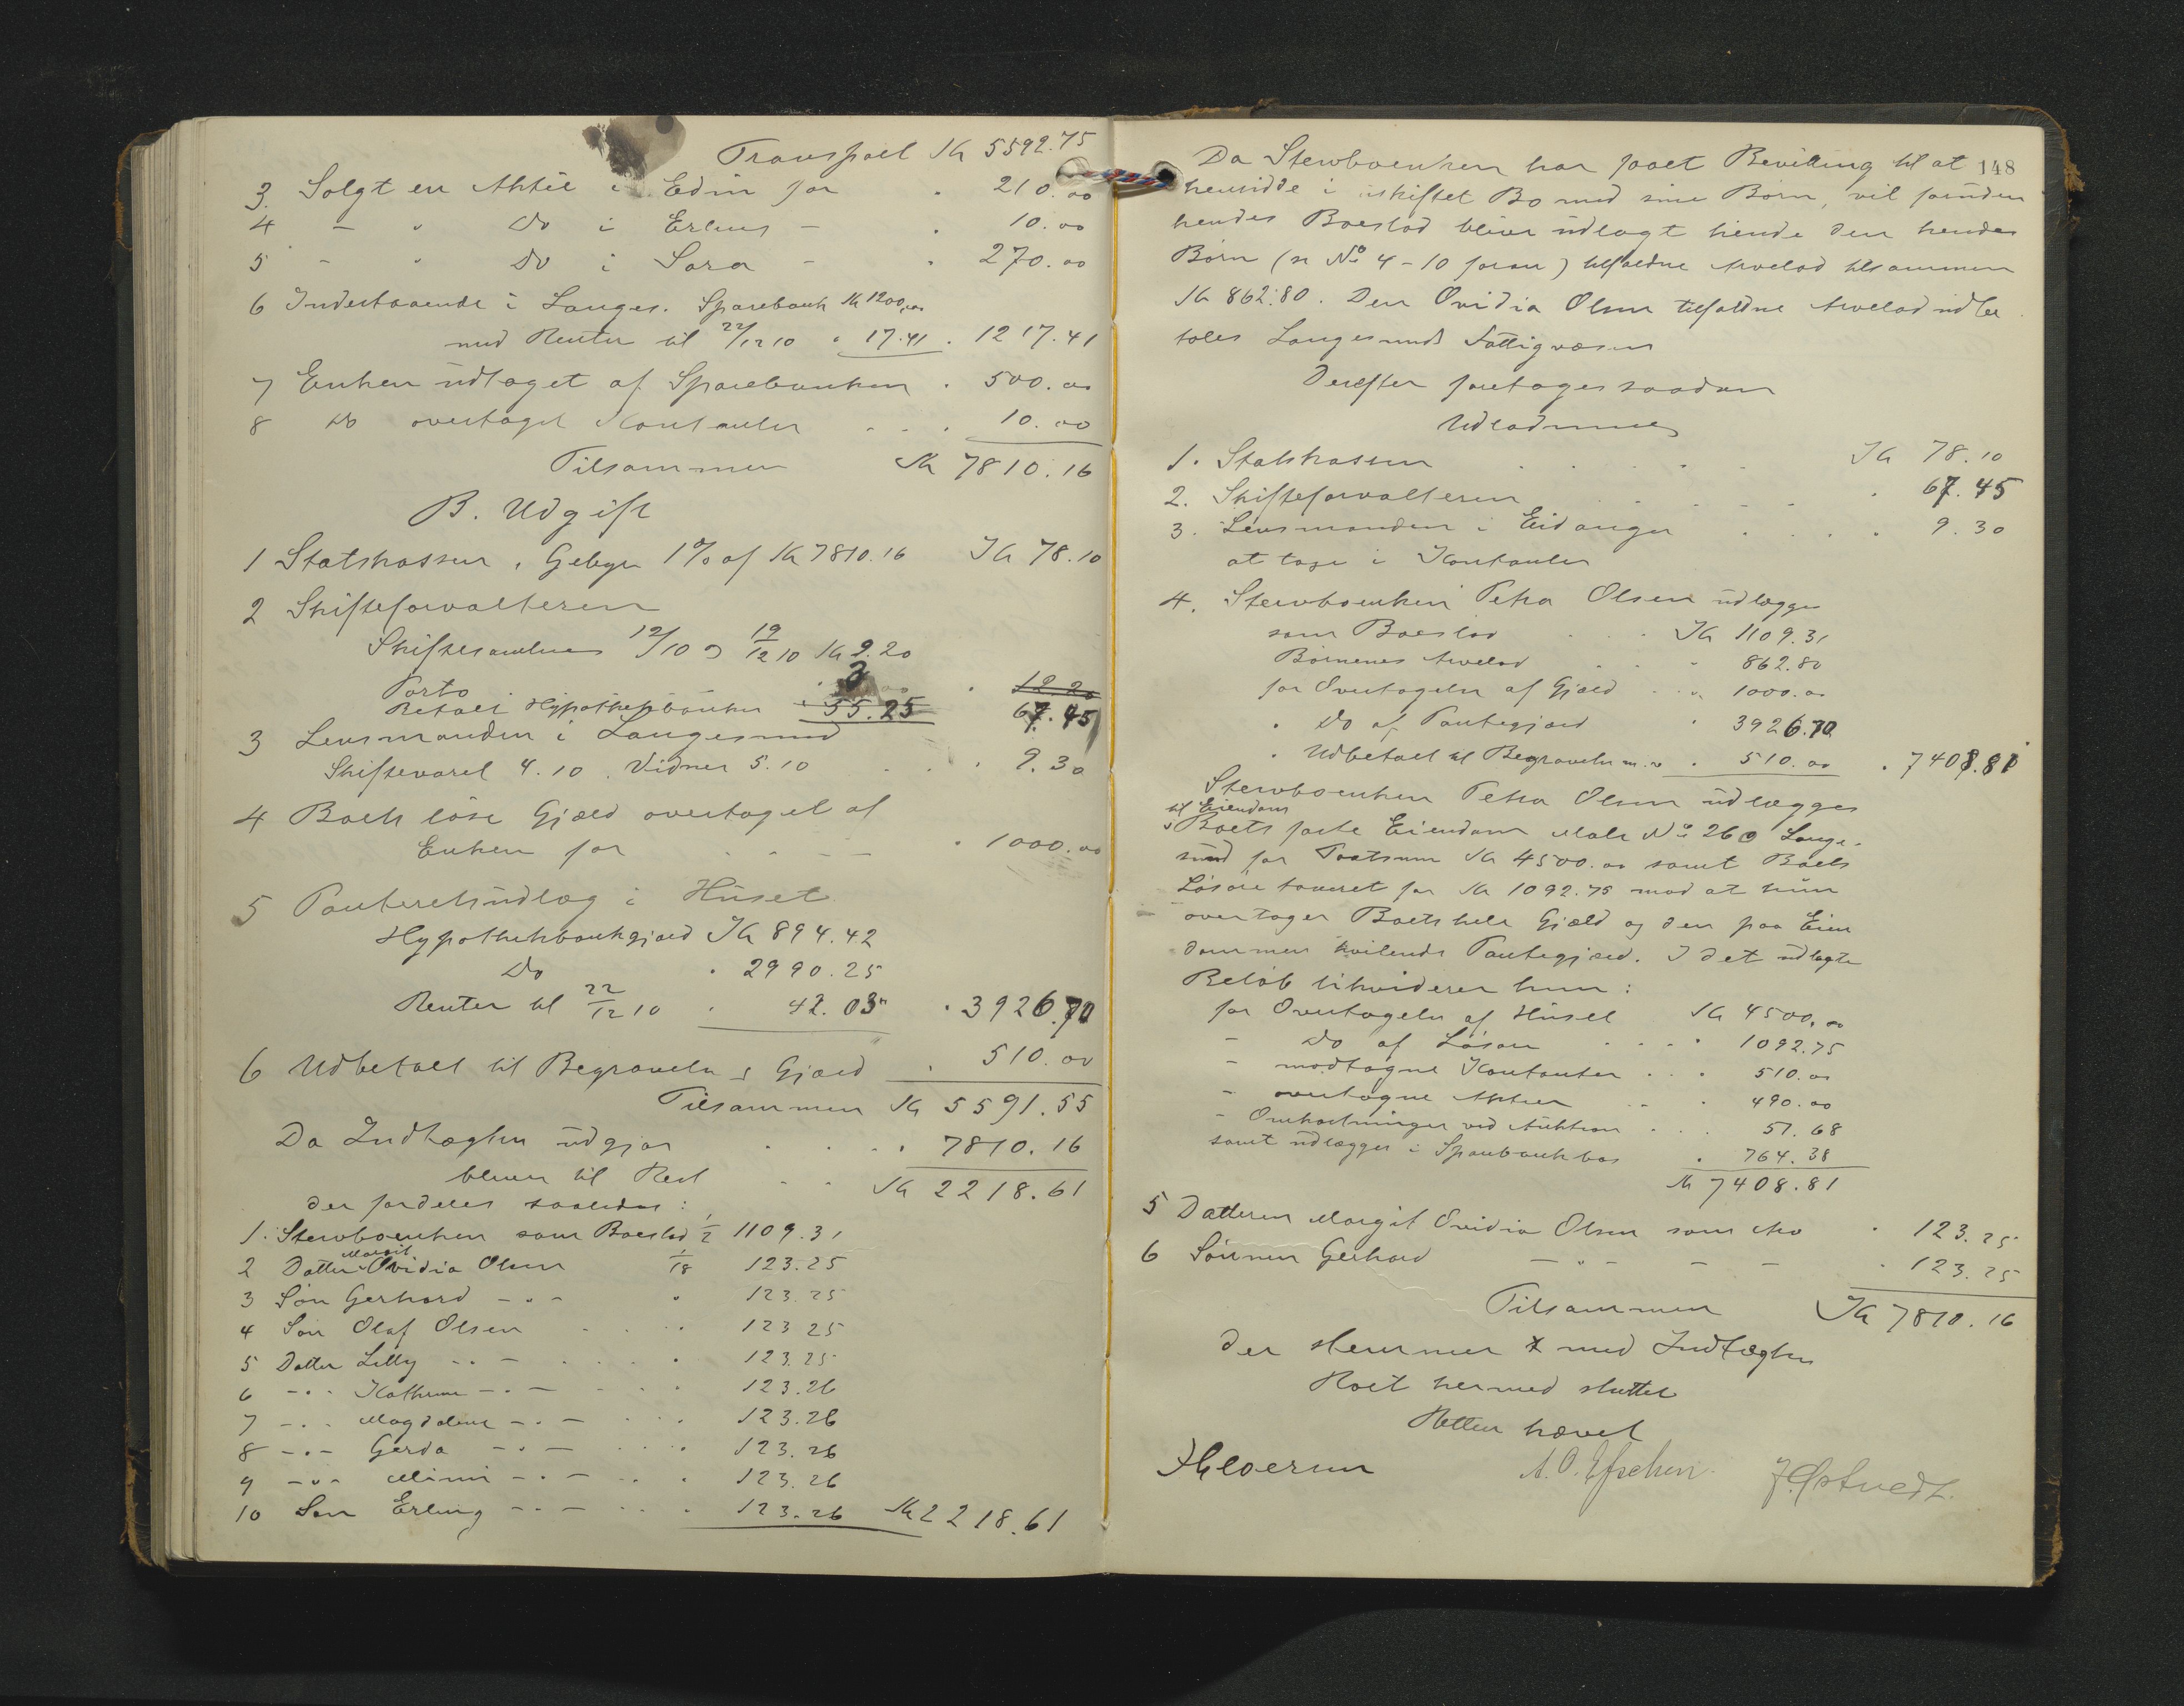 Transport Kr 5592.75
3. Solgt en Aktie i Edin for " 210.00
4 - " Do i Erling - " 10.00
5 - " Do i Sara - " 270.00
6 Indestaaende i Langes. Sparebank Kr 1200,00
med Renter til 22/12 10 " 17.41 . 1217.41
7 Enken udtaget af Sparebanken . 500.00
8 Do overtaget Kontanter . . . 10.00
Tilsammen Kr 7810.16
B. Udgift
1 Statskassen, Gebyr 1% af Kr 7810.16 Kr 78.10
2 Skifteforvalteren
Skiftesamling 12/10 og 19/12 10 Kr 9.20
Porto " 3 . 12.20
Betalt Hypothekbanken 55.25 67.45
3 Lensmanden i Langesund
Skiftevarsel 4.10. Vidner 5.10 . . . 9.30
4 Boets løse Gjæld overtaget af
Enken for . . - - . 1000.00
5 Panteretsudlæg i Huset
Hypothekbankgjæld Kr 894.42
Do " 2990.25
Renter til 22/12 10 " 42.03 . 3926.70
6 Udbetalt til Begravelse & Gjæld . 510.00
Tilsammen Kr 5591.55
Da Indtægten udgjør . . . . 7810.16
bliver til Rest . . Kr 2218.61
der fordeles saaledes:
1. Stervboenken som Boeslod 1/2 1109.31
Margit
2 Datter Ovidia Olsen 1/18 123.25
3 Søn Gerhard - " - " 123.25
4 Søn Olaf Olsen . . . 123 25
5 Datter Lilly - " - . . . 123.25
6 - " - Kathrine - " - . . . 123.26
7 - " - Magdalene - " - . . . 123.26
8 - " - Gerda - " - . . . 123.26
9 - " - Mimi - " - . . . 123.26
10 Søn Erling - " - . . . 123.26 Kr 2218.61
148
Da Stervboenken har faaet Bevilling til at
hensidde i uskiftet Bo med sine Børn, vil foruden
hendes Boeslod bliver udlagt hende den hendes
Børn (se No 4-10 foran) tilfaldne Arvelod tilsammen
Kr 862.80. Den Ovidia Olsen tilfaldne Arvelod udbe
tales Langesunds Fattigvæsen
Derefter foretages saadan
Udlodning
1. Statskassen . . . . . Kr 78.10
2. Skifteforvalteren . . . . . 67.45
3. Lensmanden i Eidanger . . . . 9.30
at tage i Kontanter
4. Stervboenken Petra Olsen udlægges
som Boeslod . . . Kr 1109.31
Børnenes Arvelod . . " 862.80
for Overtagelse af Gjæld . . " 1000.00
" Do af Pantegjæld " 3926.70
" Udbetalt til Begravelse m.v. . 510.00 . 7408.81
Stervboenken Petra Olsen udlægges
til Eiendom
Boets faste Eiendom Matr No 260 Lange-
sund for Taxtsum Kr 4500.00 samt Boets
Løsøre taxeret for Kr 1092.75 mod at hun
overtager Boets hele Gjæld og den paa Eien
dommen hvilende Pantegjæld. I det udlagte
Beløb likviderer hun:
for Overtagelse af Huset Kr 4500,00
- Do af Løsøre . . . . 1092.75
- modtagne Kontanter . . . 510.00
- overtagne Aktier - . 490.00
- Omkostninger ved Auktion . . . 51.68
samt udlægges i Sparebankbog . 764.38
Kr 7408.81
5 Datteren Margit Ovidia Olsen som Arv . 123.25
6 Sønnen Gerhard - " - - - . 123.25
Tilsammen Kr 7810.16
der stemmer med Indtægten
Boet hermed sluttet
Retten hævet
J. Østvedt